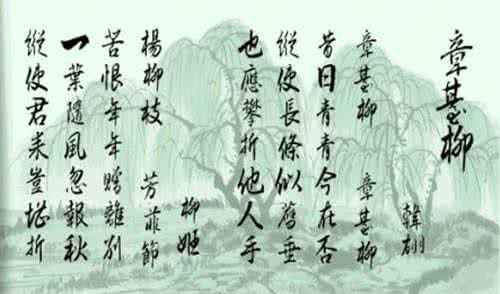 章臺柳
韓翃
章臺柳 章臺柳
昔日青青今在否
縱使長條似舊垂
也應攀折他人手
柳姬
楊柳枝 芳菲節
苦恨年年贈離別
一葉隨風忽報秋
縱使君來豈堪折